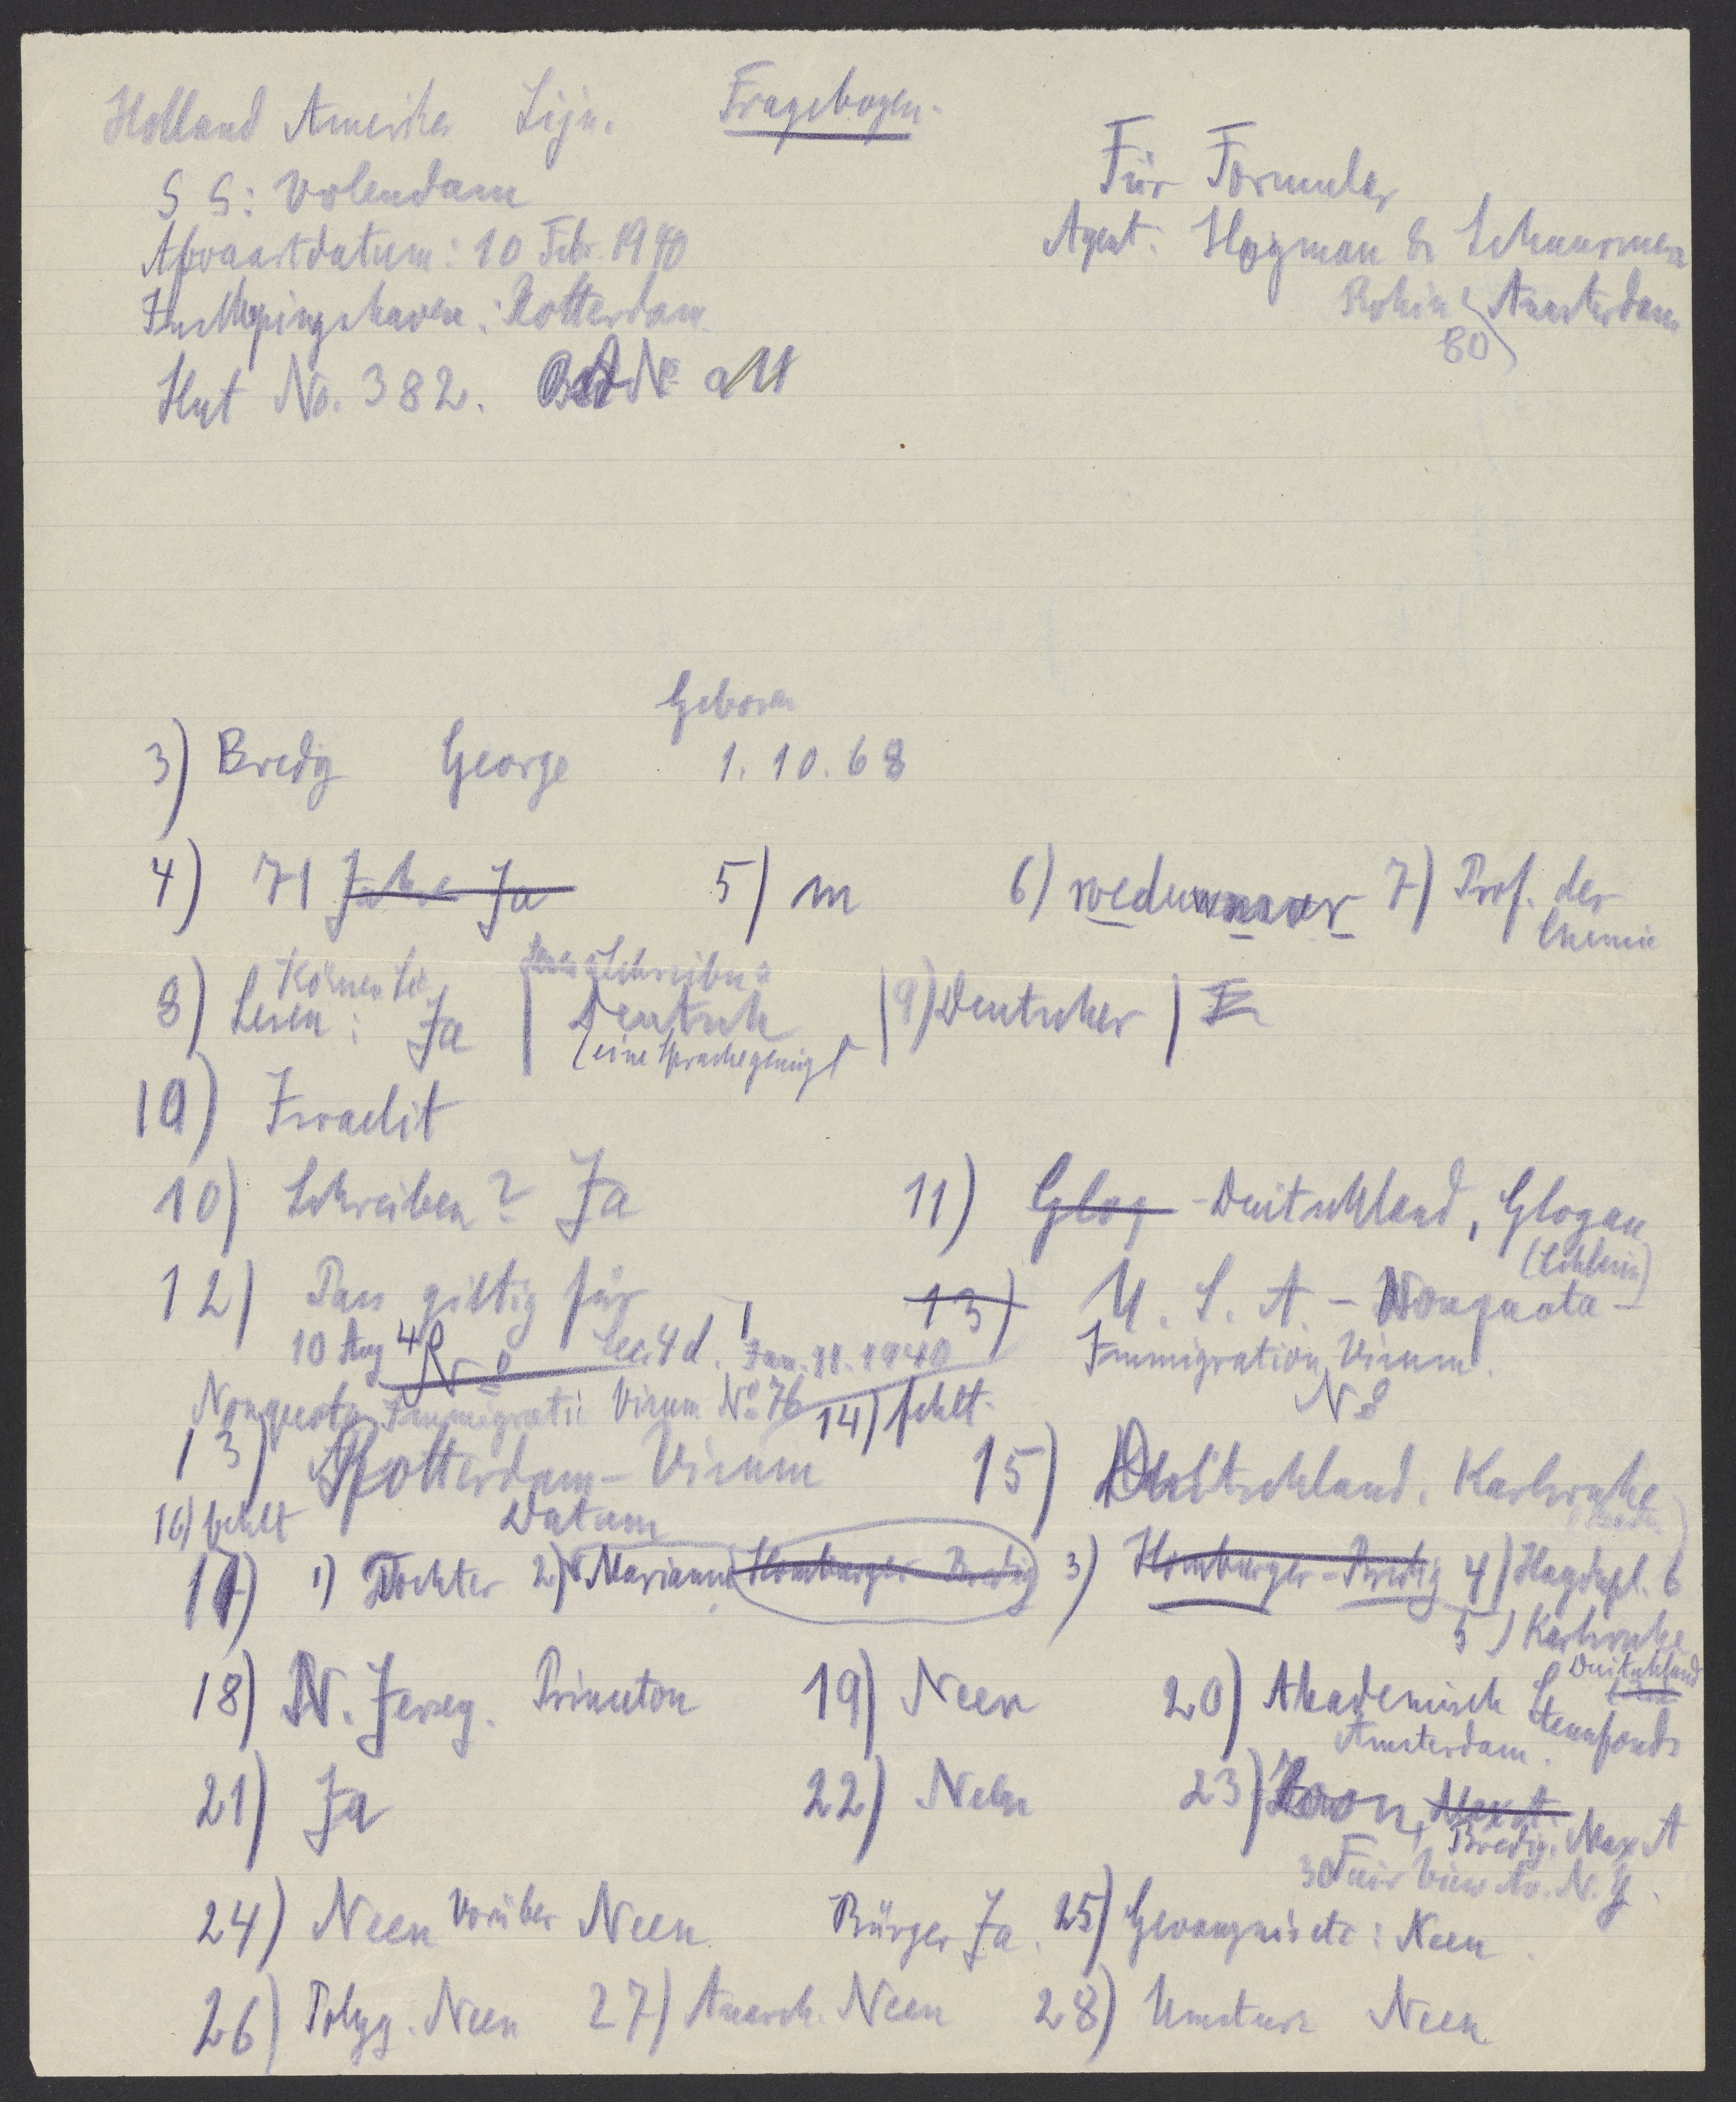 Holland Amerika Lijn. Fragebogen.
Für Formular
S S: Volendam
Afvaartdatum: 10 Febr. 1940
Agent: Hoyman & Schuurman
Inschepingshaven: Rotterdam
Rokin 80 Amsterdam
Hut No. 382. Bed No
Geboren
3) Bredig George 1. 10. 68
4) 71 Jahre Ja 5) m 6) weduwnaar 7) Prof. der
Chemie
8) Können Sie Lesen: Ja | Schreiben: Deutsch | 9) Deutscher |
(eine Sprache genügt
10) Israelit
10) Schreiben? Ja 11) Glog - Deutschland, Glogau
(Schlesien)
12) Pass giltig für 13) U. S. A. - Nonquota -
10 Aug 4 No Sec. 4 d. Jan. 11. 1940 Immigration Visum.
Nonquota Immigratie Visum No 76 14) fehlt. No
13) Rotterdam - Visum 15) Deutschland. Karlsruhe
16) fehlt Datum (Baden)
17) 1) Tochter 2) Marianne Homburger-Bredig 3) Homburger-Bredig 4) Haydnpl. 6
5) Karlsruhe
Deutschland
18) N. Jersey. Princeton 19) Neen 20) Akademisch Steunfonds
Amsterdam.
21) Ja 22) Neen 23) Zoon, Max A.
Bredig, Max A
30 Fair View Av. N. Y.
24) Neen Vorüber Neen Bürger Ja. 25) Gevangnis etc: Neen.
26) Polyg. Neen 27) Anarch. Neen 28) Umsturz Neen